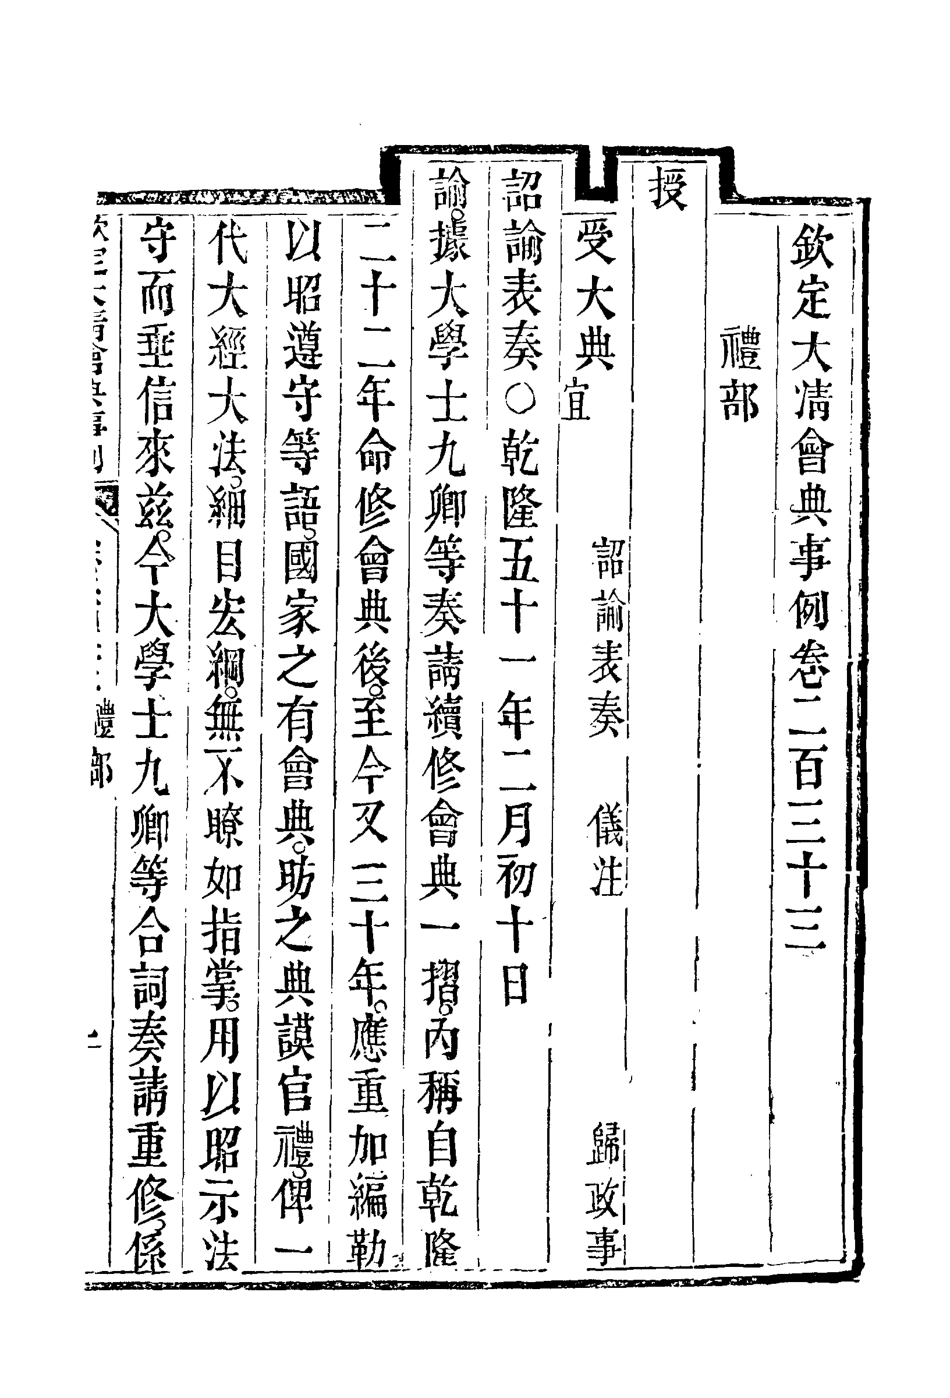 欽定大淸會典事例卷二百三十三
禮部
授
受大典 詔諭表奏 儀注 歸政事
宜
詔諭表奏○乾隆五十一年二月初十日
諭。據大學士九卿等奏請續修會典一摺。內稱自乾隆
二十二年命修會典後。至今又三十年。應重加編勒
以昭遵守等語。國家之有會典。昉之典謨官禮。俾一
代大經大法。細目宏綱。無不瞭如指掌。用以昭示法
守而垂信來茲。今大學士九卿等合詞奏請重修。係
欽定大清會典事例
禮部
一